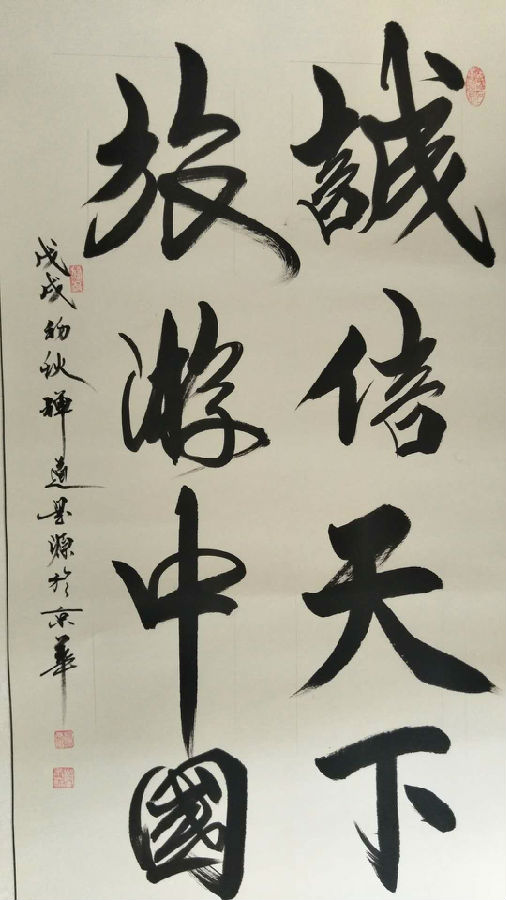 誠信天下
旅游中國
戊戌初秋禅道墨源於京華